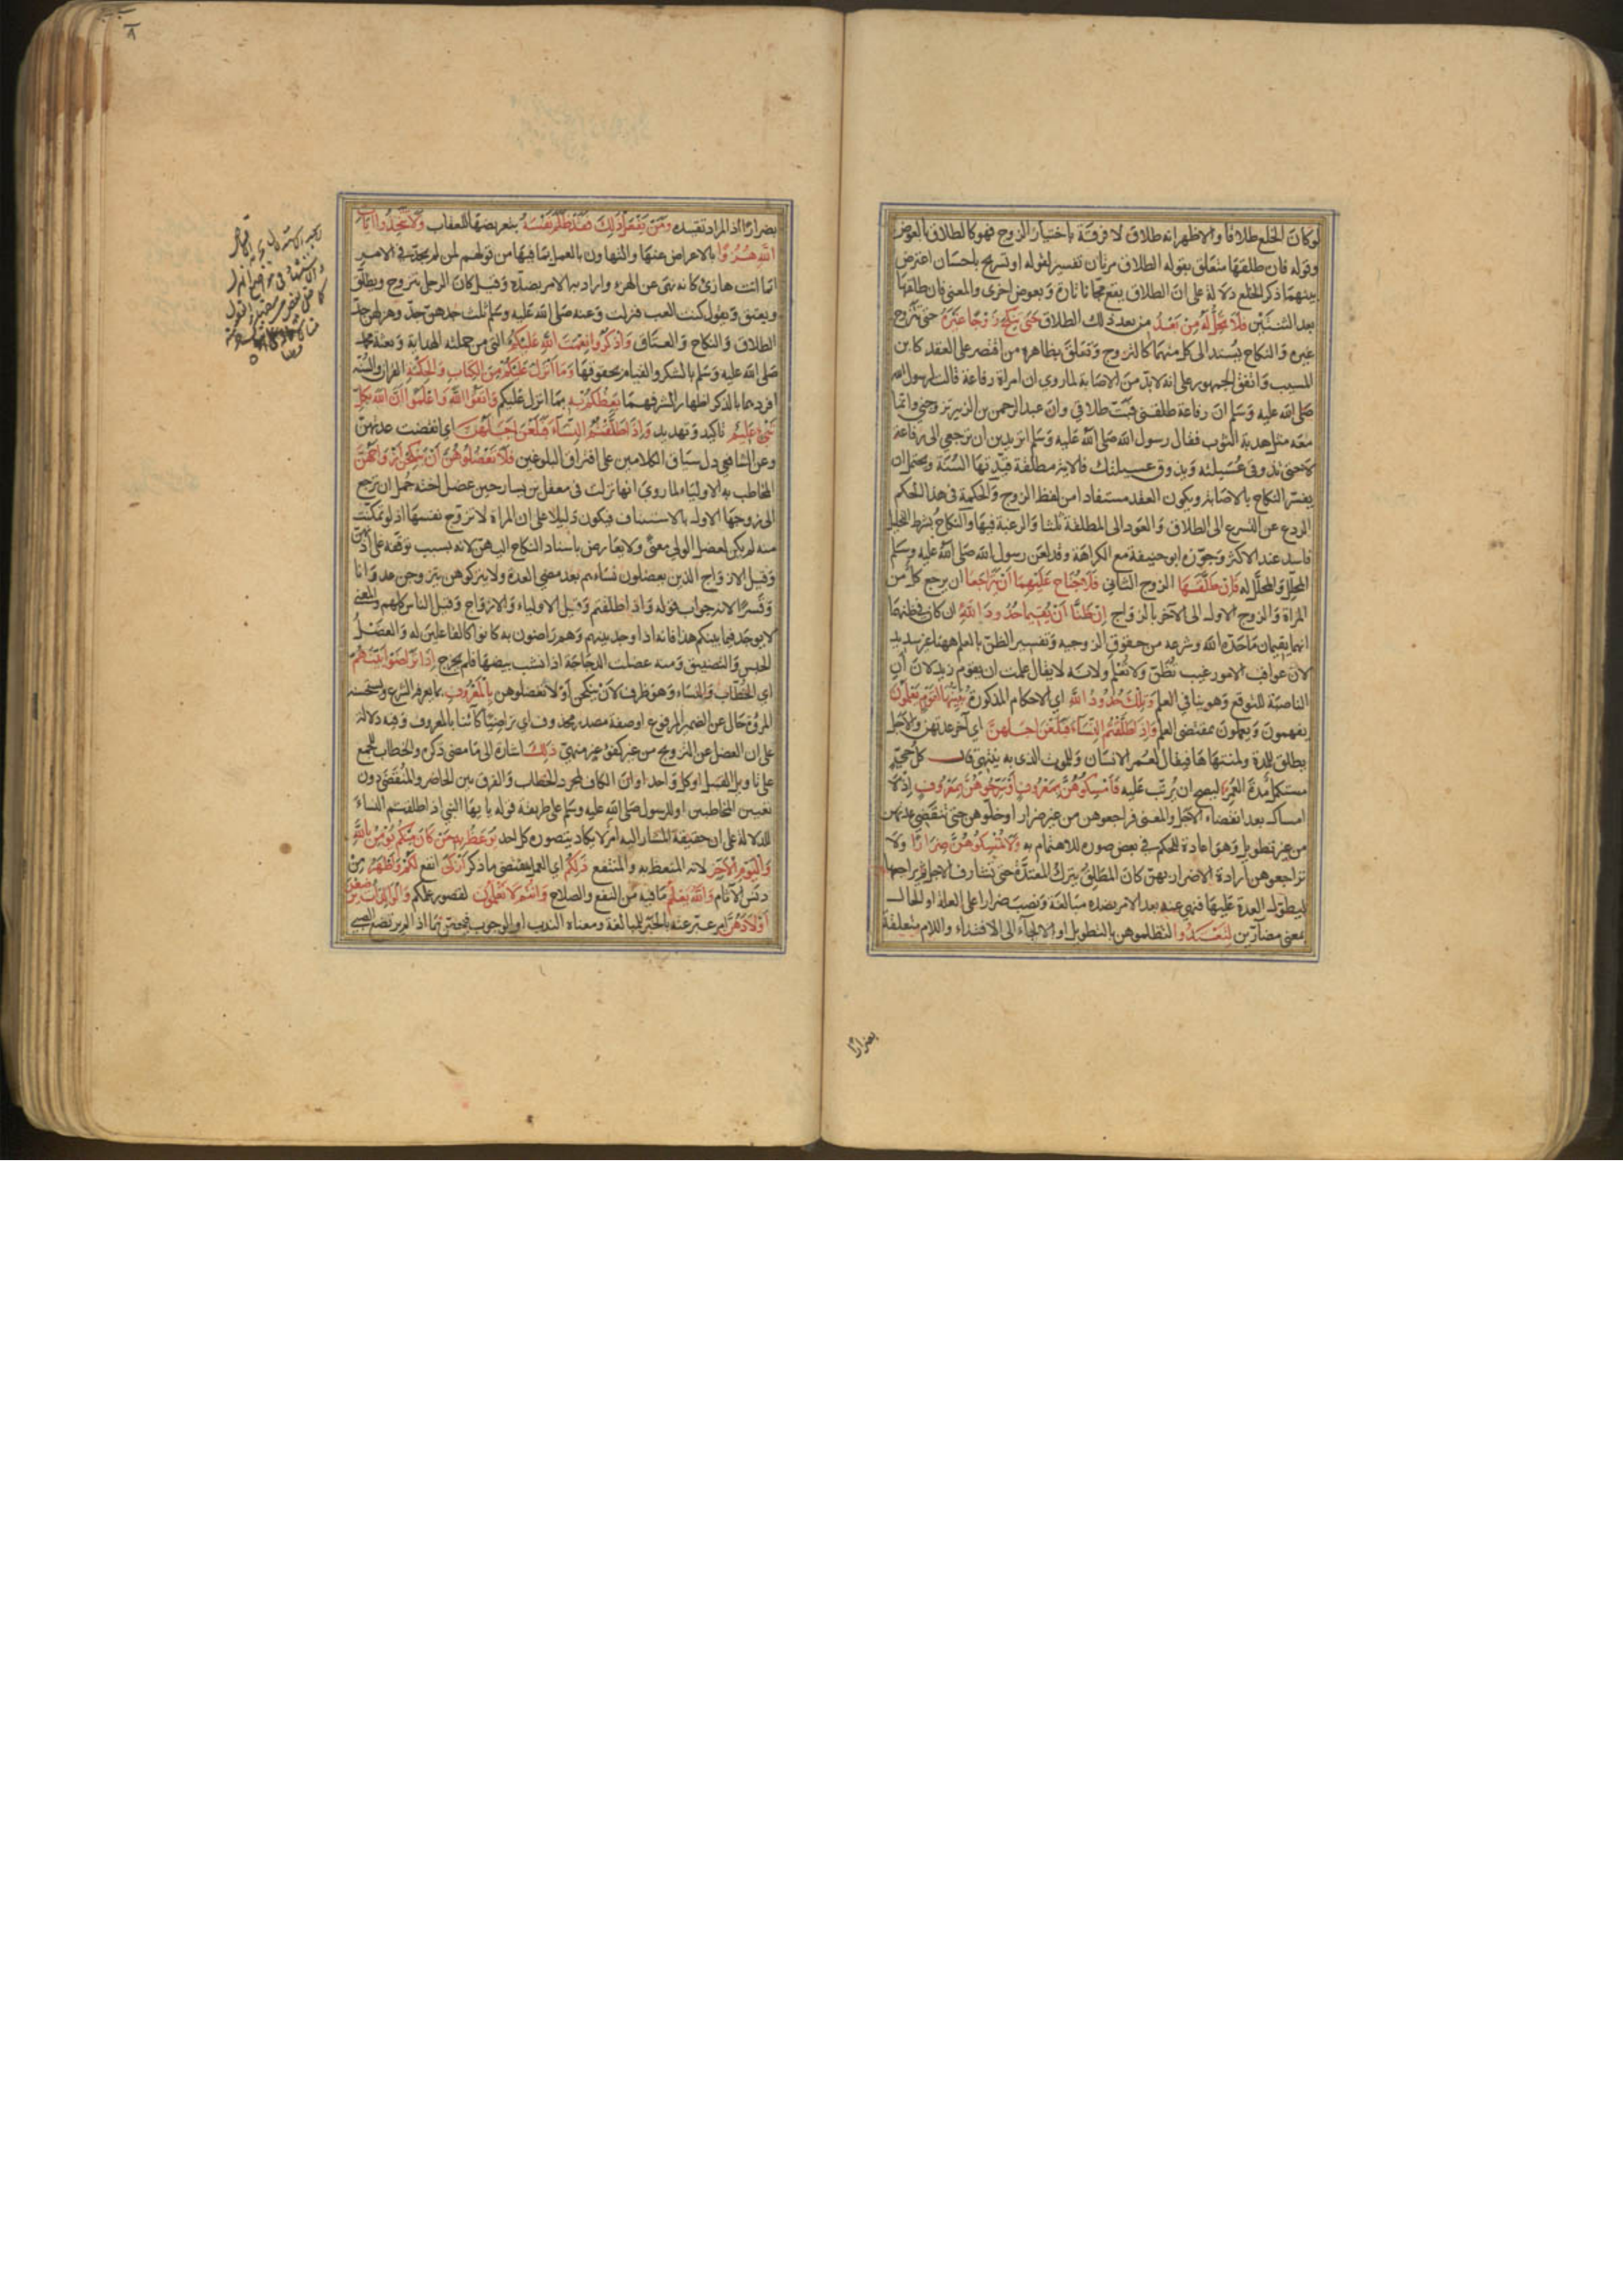 لو كان الخلع طلاقا والاظهر انه طلاق لا فرقة باختيار الزوج فهو كالطلاق بالعوض
وقوله فان طلقها متعلق بقوله الطلاق مرتان تفسير لقوله او تسريح باحسان اعترض
بينهما ذكر الخلع دلالة على ان الطلاق يقع مجانا تارة وبعوض اخرى والمعنى فان طلقها
بعد الثنتين فَلَا تَحِلُّ لَهُ مِنْ بَعْدُ من بعد ذلك الطلاق حَتَّى تَنْكِحَ زَوْجًا غَيْرَهُ حتى تتزوج
غيره والنكاح يسند الى كل منهما كالتزوج وتعلق بظاهره من اقتصر على العقد كابن
المسيب واتفق الجمهور على انه لابد من الاصابة لما روي ان امراة رفاعة قالت لرسول الله
صلى الله عليه وسلم ان رفاعة طلقني فبتّ طلاقي وان عبد الرحمن بن الزبير تزوجني وانما
معه مثل هدبة الثوب فقال رسول الله صلى الله عليه وسلم اتريدين ان ترجعي الى رفاعة
لا حتى تذوقي عسيلته ويذوق عسيلتك فالاية مطلقة قيدتها السنة ويحتمل ان
يفسر النكاح بالاصابة ويكون العقد مستفادا من لفظ الزوج والحكمة في هذا الحكم
الردع عن التسرع الى الطلاق والعود الى المطلقة ثلثا والرغبة فيها والنكاح بشرط التحليل
فاسد عند الاكثر وجوزه ابو حنيفة مع الكراهة وقد لعن رسول الله صلى الله عليه وسلم
المحلل والمحلل له فَإِنْ طَلَّقَهَا الزوج الثاني فَلَا جُنَاحَ عَلَيْهِمَا أَنْ يَتَرَاجَعَا ان يرجع كل من
المراة والزوج الاول الى الآخر بالزواج إِنْ ظَنَّا أَنْ يُقِيمَا حُدُودَ اللَّهِ ان كان في ظنهما
انهما يقيمان ما حدّه الله وشرعه من حقوق الزوجية وتفسير الظن بالعلم ههنا غير سديد
لان عواقب الامور غيب تظن ولا تعلم ولانه لا يقال علمت ان يقوم زيد لان أن
الناصبة للتوقع وهو ينافي العلم وَتِلْكَ حُدُودُ اللَّهِ اي الاحكام المذكورة يُبَيِّنُهَا لِقَوْمٍ يَعْلَمُونَ
يفهمون ويعملون بمقتضى العلم وَإِذَا طَلَّقْتُمُ النِّسَاءَ فَبَلَغْنَ أَجَلَهُنَّ اي آخر عدتهن والاجل
يطلق للمدة ولمنتهاها فيقال لعمر الانسان وللموت الذي به ينتهي قال كل حي
مستكمل مدة العمر ليصح ان يرتب عليه فَأَمْسِكُوهُنَّ بِمَعْرُوفٍ أَوْ سَرِّحُوهُنَّ بِمَعْرُوفٍ اذ لا
امساك بعد انقضاء الاجل والمعنى فراجعوهن من غير ضرار او خلوهن حتى تنقضي عدتهن
من غير تطويل وهو اعادة للحكم في بعض صوره للاهتمام به وَلَا تُمْسِكُوهُنَّ ضِرَارًا ولا
تراجعوهن ارادة الاضرار بهن كان المطلق يترك المعتدة حتى تشارف الاجل ثم يراجعها
ليطول العدة عليها فنهي عنه بعد الامر بضده مبالغة ونصب ضرارا على العلة او الحال
بمعنى مضارين لِتَعْتَدُوا لتظلموهن بالتطويل او الالجاء الى الافتداء واللام متعلقة
بضرارا
بضرارا اذ المراد تقييده وَمَنْ يَفْعَلْ ذَلِكَ فَقَدْ ظَلَمَ نَفْسَهُ بتعريضها للعقاب وَلَا تَتَّخِذُوا آيَاتِ
اللَّهِ هُزُوًا بالاعراض عنها والتهاون بالعمل بما فيها من قولهم لمن لم يجدّ في الامر
انما انت هازئ كانه نهى عن الهزء واراد به الامر بضده وقيل كان الرجل يتزوج ويطلق
ويعتق ويقول كنت العب فنزلت وعنه صلى الله عليه وسلم ثلث جدهن جد وهزلهن جد
الطلاق والنكاح والعتاق وَاذْكُرُوا نِعْمَتَ اللَّهِ عَلَيْكُمْ التي من جملته الهداية وبعثة محمد
صلى الله عليه وسلم بالشكر والقيام بحقوقها وَمَا أَنْزَلَ عَلَيْكُمْ مِنَ الْكِتَابِ وَالْحِكْمَةِ القران والسنة
افردهما بالذكر اظهارا لشرفهما يَعِظُكُمْ بِهِ بما انزل عليكم وَاتَّقُوا اللَّهَ وَاعْلَمُوا أَنَّ اللَّهَ بِكُلِّ
شَيْءٍ عَلِيمٌ تاكيد وتهديد وَإِذَا طَلَّقْتُمُ النِّسَاءَ فَبَلَغْنَ أَجَلَهُنَّ اي انقضت عدتهن
وعن الشافعي دل سياق الكلامين على افتراق البلوغين فَلَا تَعْضُلُوهُنَّ أَنْ يَنْكِحْنَ أَزْوَاجَهُنَّ
المخاطب به الاولياء لما روي انها نزلت في معقل بن يسار حين عضل اخته جمل ان ترجع
الى زوجها الاول بالاستيناف فيكون دليلا على ان المراة لا تزوج نفسها اذ لو تمكنت
منه لم يكن لعضل الولي معنى ولا يعارض باسناد النكاح اليهن لانه بسبب توقفه على اذنهن
وقيل الازواج الذين يعضلون نساءهم بعد مضي العدة ولا يتركوهن يتزوجن عدوانا
وقسرا لانه جواب قوله واذا طلقتم وقيل الاولياء والازواج وقيل الناس كلهم والمعنى
لا يوجد فيما بينكم هذا فانه اذا وجد بينهم وهم راضون به كانوا كالفاعلين له والعضل
الحبس والتضييق ومنه عضلت الدجاجة اذا نشب بيضها فلم يخرج إِذَا تَرَاضَوْا بَيْنَهُمْ
اي الخطاب والنساء وهو ظرف لان ينكحن او لا تعضلوهن بِالْمَعْرُوفِ بما يعرفه الشرع ويستحسنه
المروة حال عن الضمير المرفوع او صفة مصدر محذوف اي تراضيا كائنا بالمعروف وفيه دلالة
على ان العضل عن التزويج من غير كفؤ غير منهي ذَلِكَ اشارة الى ما مضى ذكره والخطاب للجمع
على تاويل القبيل او كل واحد او ان الكاف لمجرد الخطاب والفرق بين الحاضر والمنقضي دون
تعيين المخاطبين او للرسول صلى الله عليه وسلم على طريقة قوله يا ايها النبي اذا طلقتم النساء
للدلالة على ان حقيقة المشار اليه امر لا يكاد يتصوره كل احد يُوعَظُ بِهِ مَنْ كَانَ مِنْكُمْ يُؤْمِنُ بِاللَّهِ
وَالْيَوْمِ الْآخِرِ لانه المتعظ به والمنتفع ذَلِكُمْ اي العمل بمقتضى ما ذكر أَزْكَى انفع لَكُمْ وَأَطْهَرُ من
دنس الآثام وَاللَّهُ يَعْلَمُ ما فيه من النفع والصلاح وَأَنْتُمْ لَا تَعْلَمُونَ لقصور علمكم وَالْوَالِدَاتُ يُرْضِعْنَ
أَوْلَادَهُنَّ امر عبر عنه بالخبر للمبالغة ومعناه الندب او الوجوب فيختص بما اذا لم يرتضع الصبي